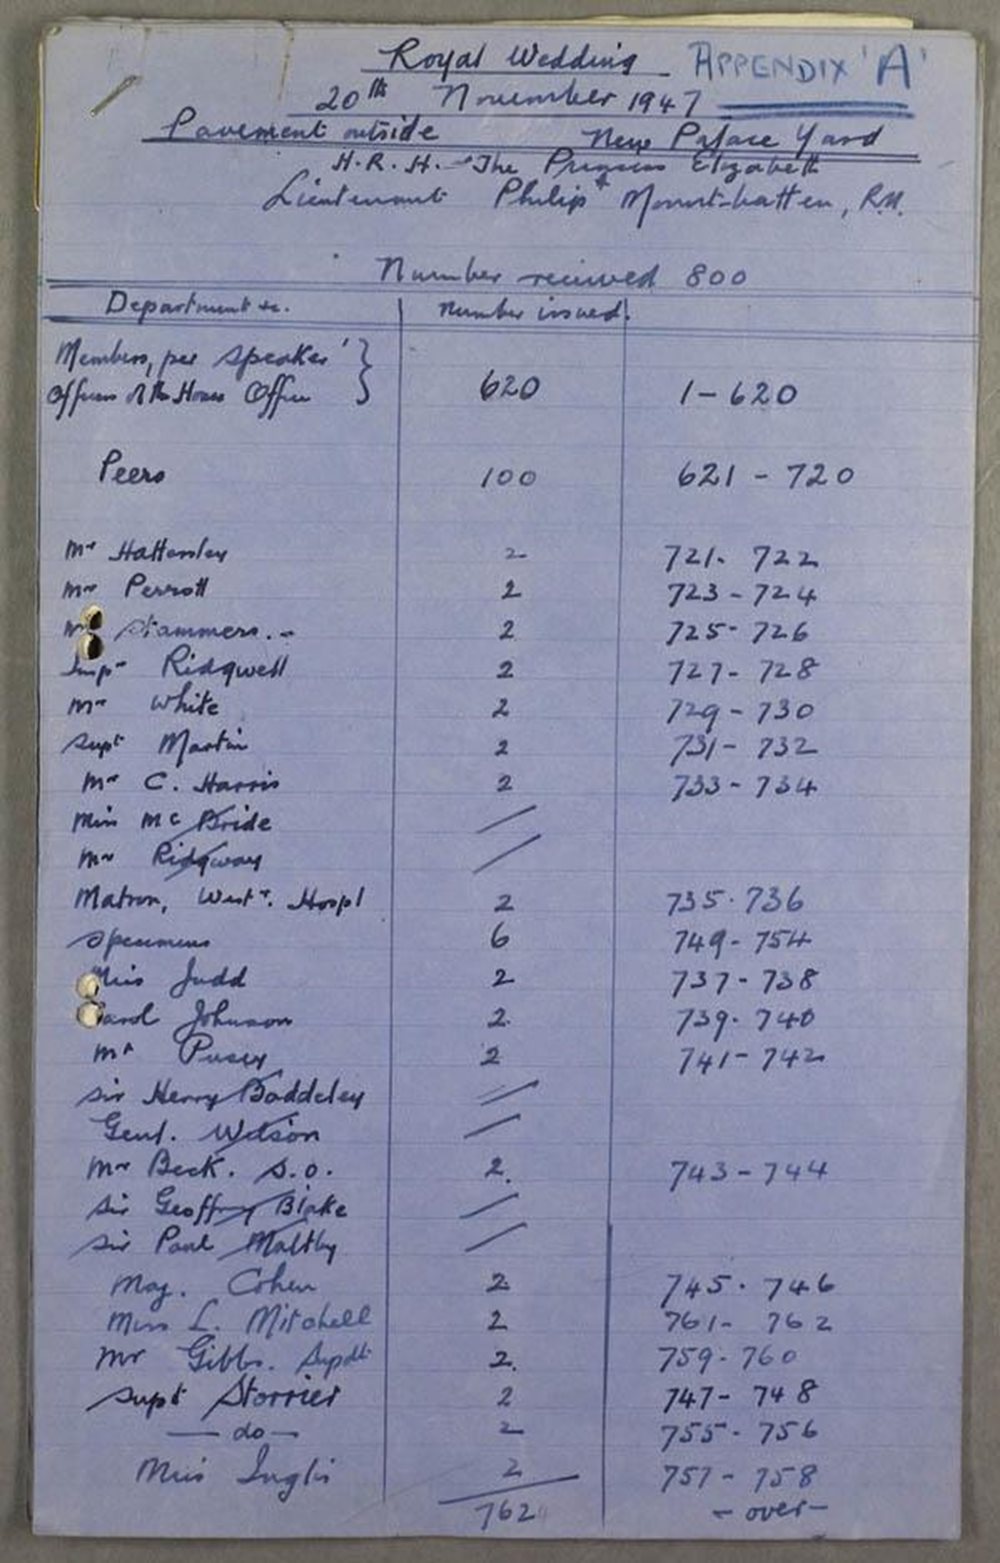 Royal Wedding APPENDIX 'A'
20th November 1947
Pavement outside New Palace Yard
H.R.H. The Princess Elizabeth
+
Lieutenant Philip Mountbatten, R.N.
Number received 800
Department &c. Number issued.
Members, per Speaker'
Officers of the House Office } 620 1-620
Peers 100 621 - 720
Mr Hattersley 2 721. 722
Mr Perrott 2 723 - 724
Stammers. - 2 725 - 726
Inspr Ridgwell 2 727 - 728
Mr White 2 729 - 730
Supt Martin 2 731 - 732
Mr C. Harris 2 733 - 734
Miss McBride //
Mr Ridgway //
Matron, Westr. Hospl 2 735. 736
Specimens 6 749 - 754
Miss Judd 2 737 - 738
Carol Johnson 2 739. 740
Mr Pusey 2 741 - 742
Sir Henry Baddeley //
Genl. Wilson //
Mr Beck. S.O. 2. 743 - 744
Sir Geoffrey Blake //
Sir Paul Maltby //
Maj. Cohen 2 745. 746
Miss L. Mitchell 2 761 - 762
Mr Gibbs. Supdt 2. 759. 760
Supt Storrier 2 747 - 748
— do — 2 755. 756
Miss Inglis 2 757 - 758
762 - over -